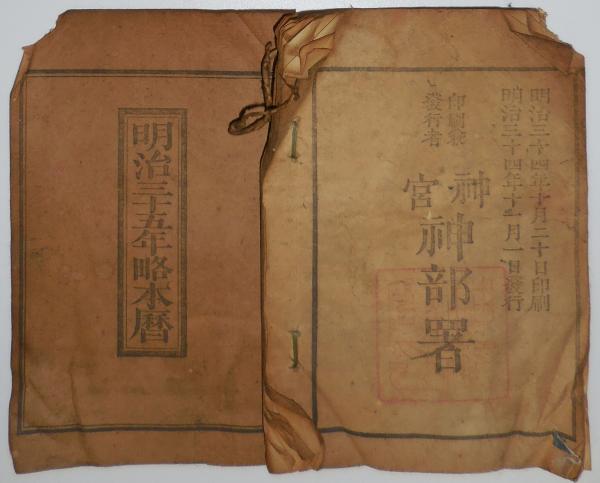 明治三十四年十月二十日印刷
明治三十四年十一月一日發行
印刷兼
發行者
神宮
神部署
明治三十五年略本暦